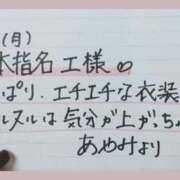 (月)
本指名 工様
ぱり、エチエチな衣装
ルスルは気分が上がち
あやみより